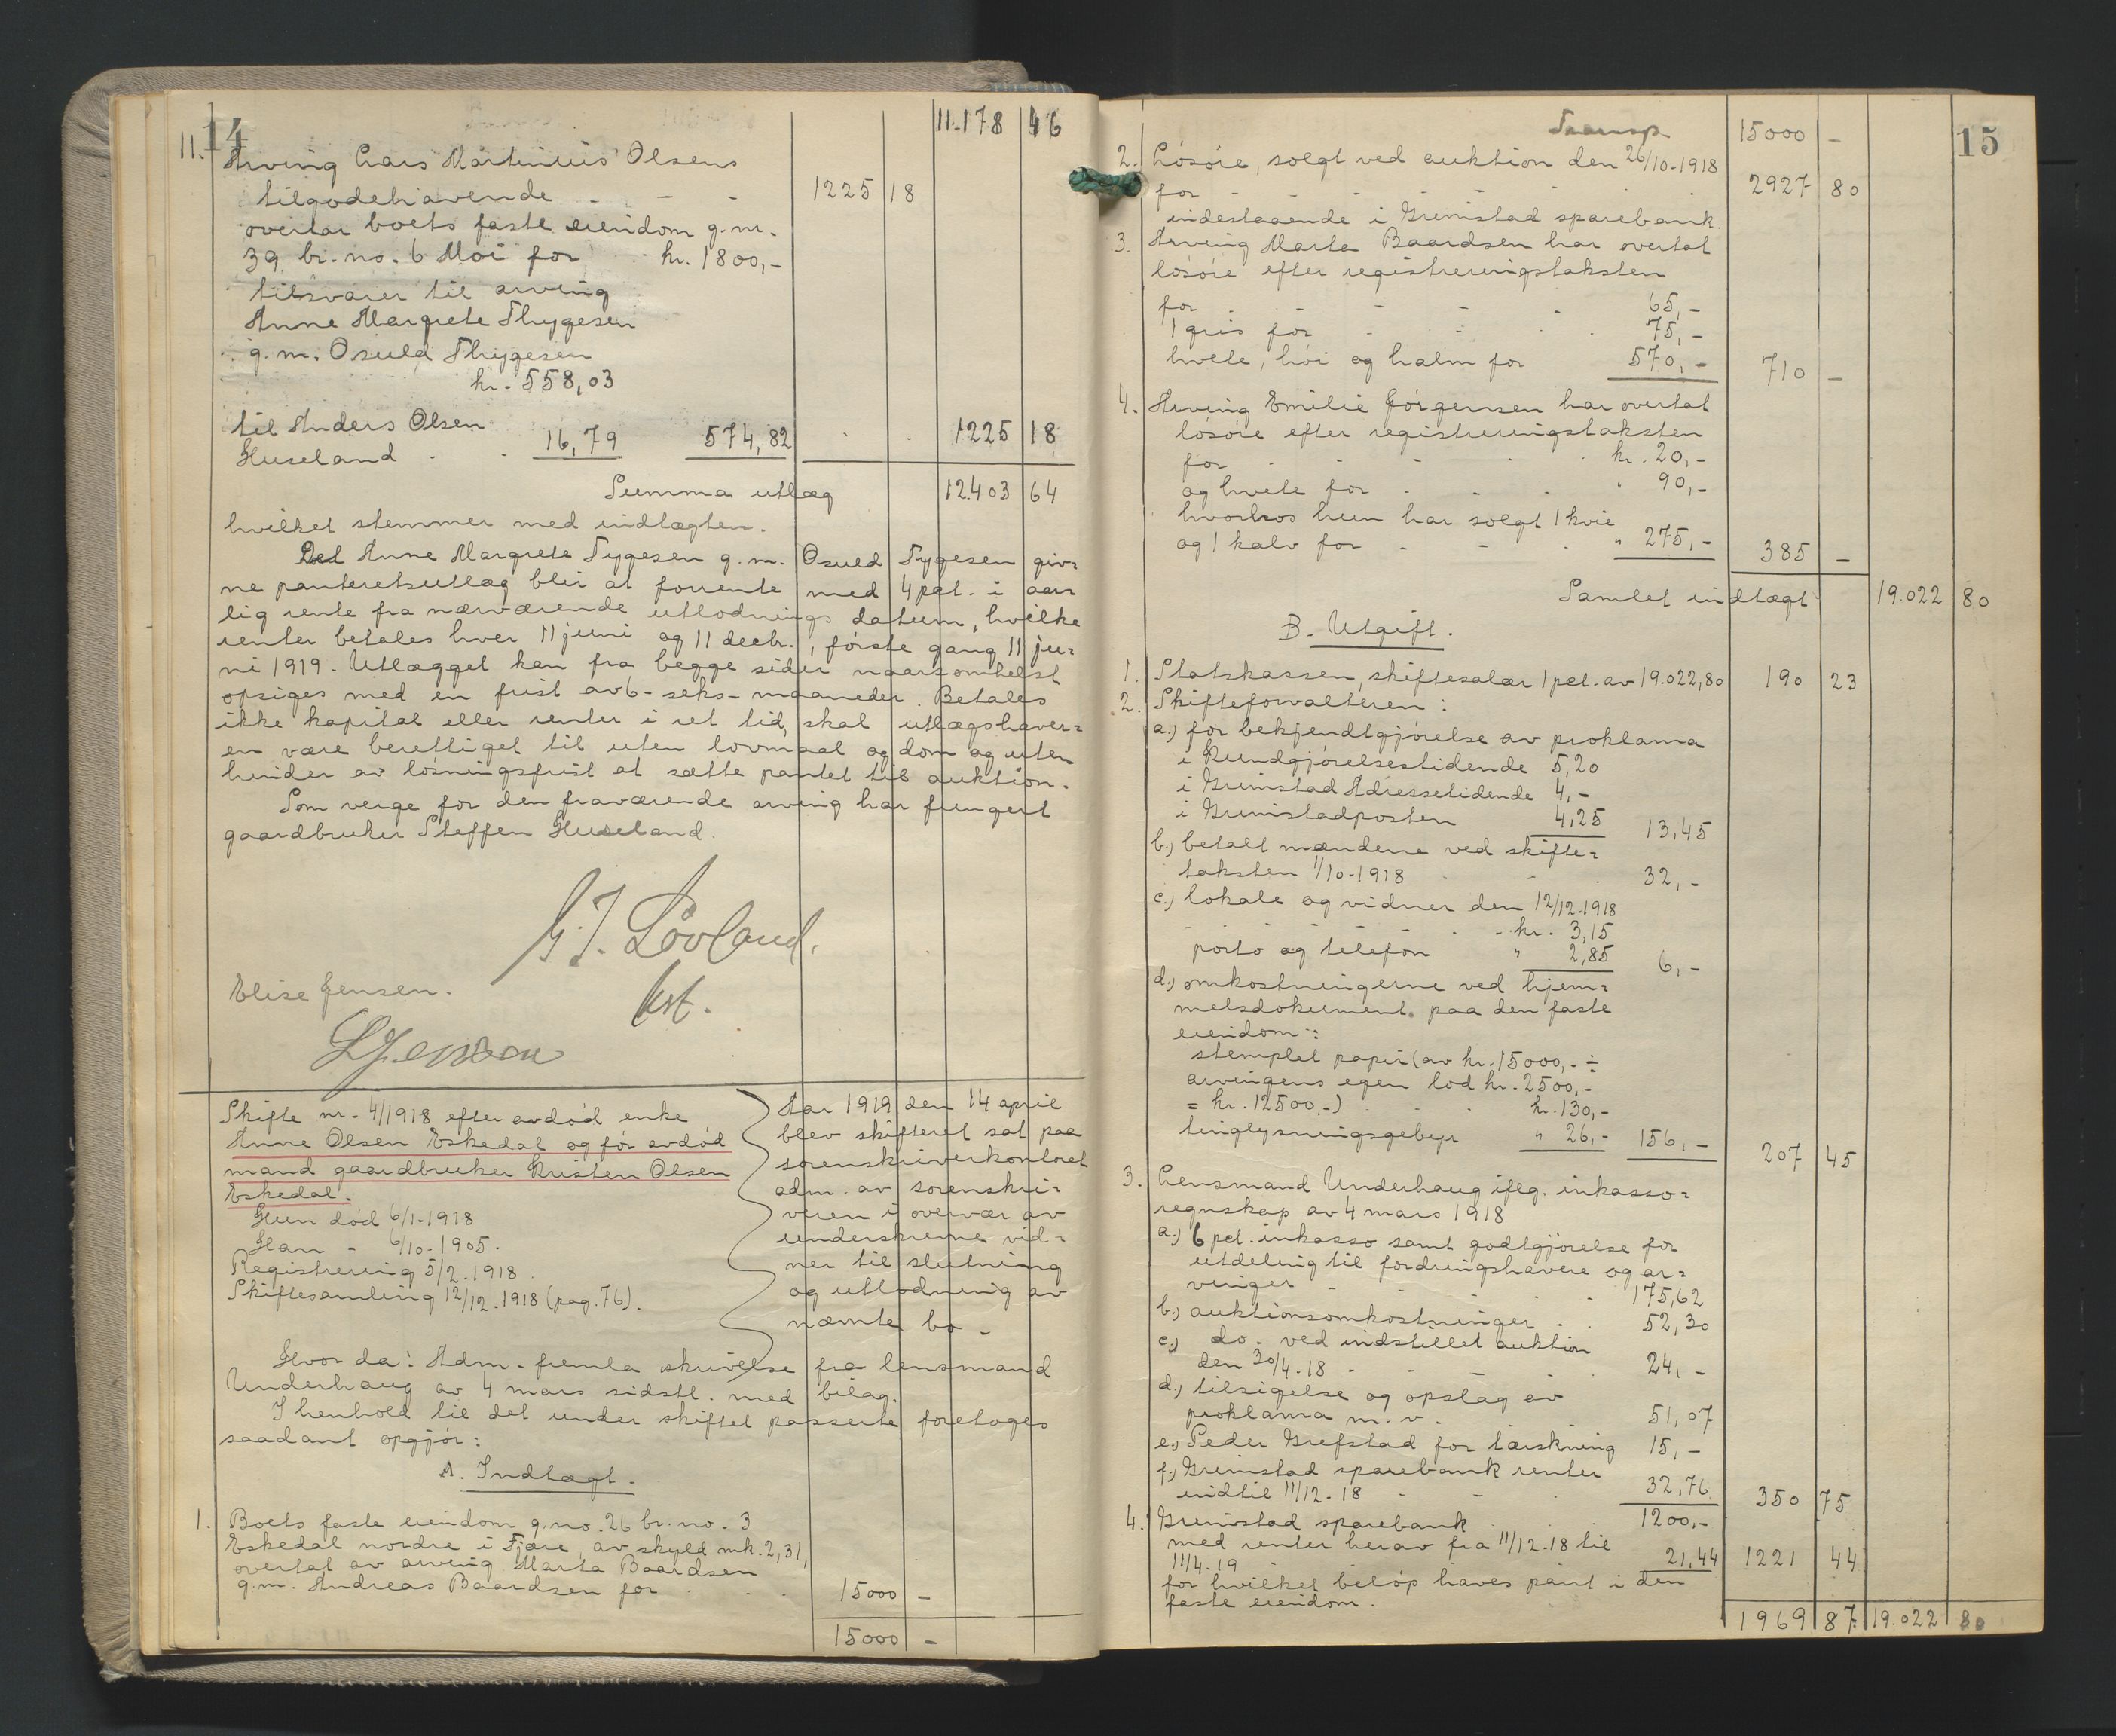 14
11.178 46
11. Arving Lars Martinius Olsens
tilgodehavende - - - 1225 18
overtar boets faste eiendom g.nr.
39 br.no. 6 Moi for kr. 1800,-
tilsvarer til arving
Anne Margrete Thygesen
g.m. Osuld Thygesen
kr. 558,03
til Anders Olsen
Huseland - - 16,79 574,82 . . 1225 18
Summa utlæg 12.403 64
hvilket stemmer med indtægten.
Det Anne Margrete Tygesen g.m. Osuld Tygesen giv-
ne panteretsutlæg blir at forrente med 4 pct. i aar-
lig rente fra nærværende utlodnings datum, hvilke
renter betales hver 11 juni og 11 decbr., første gang 11 ju-
ni 1919. Utlægget kan fra begge sider naarsomhelst
opsiges med en frist av 6 - seks - maaneder. Betales
ikke kapital eller renter i ret tid, skal utlægshaver-
en være berettiget til uten lovmaal og dom og uten
hinder av løsningsfrist at sætte pantet til auktion.
Som verge for den fraværende arving har fungert
gaardbruker Steffen Huseland.
G.T. Løvland.
kst.
Elise Jensen.
L Jensen
Skifte nr. 4/1918 efter avdød enke
Anne Olsen Eskedal og før avdød
mand gaardbruker Kristen Olsen
Eskedal.
Hun død 6/1-1918
Han - 6/10-1905.
Registrering 5/2.1918.
Skiftesamling 12/12.1918 (pag. 76).
Aar 1919 den 14 april
blev skifteret sat paa
sorenskriverkontoret
adm. av sorenskri-
veren i overvær av
underskrevne vid-
ner til slutning
og utlodning av
nævnte bo -
Hvor da: Adm. fremla skrivelse fra lensmand
Underhaug av 4 mars sidstl. med bilag.
I henhold til det under skiftet passerte foretoges
saadant opgjør:
A. Indtægt.
1. Boets faste eiendom g.no. 26 br.no. 3
Eskedal nordre i Fjære, av skyld mk. 2,31,
overtat av arving Marta Baardsen
g.m. Andreas Baardsen for . . . 15000 -
15000 -
15
Transp. 15000 -
2. Løsøre, solgt ved auktion den 26/10-1918
for - - - - - 2927 80
indestaaende i Grimstad sparebank.
3. Arving Marta Baardsen har overtat
løsøre efter registreringstaksten
for - - - - 65,-
1 gris for - - - 75,-
hvete, høi og halm for 570,- 710 -
4. Arving Emilie Jørgensen har overtat
løsøre efter registreringstaksten
for - - - - kr. 20,-
og hvete for - - - " 90,-
hvorhos hun har solgt 1 kvie
og 1 kalv for - - - " 275,- 385 -
Samlet indtægt 19.022 80
B. Utgift.
1. Statskassen, skiftesalær 1 pct. av 19.022,80 190 23
2. Skifteforvalteren:
a.) for bekjendtgjørelse av proklama
i Kundgjørelsestidende 5,20
i Grimstad Adressetidende 4,-
i Grimstadposten 4,25 13,45
b.) betalt mændene ved skifte-
taksten 1/10-1918 . - . 32,-
c.) lokale og vidner den 12/12.1918
- - - - kr. 3,15
porto og telefon " 2,85 6,-
d.) omkostningerne ved hjem-
melsdokument. paa den faste
eiendom:
stemplet papir (av kr. 15000,- ÷
arvingens egen lod kr. 2500,-
= kr. 12500,-) . . kr. 130,-
tinglysningsgebyr " 26,- 156,- 207 45
3. Lensmand Underhaug iflg. inkasso-
regnskap av 4 mars 1918
a.) 6 pct. inkasso samt godtgjørelse for
utdeling til fordringshavere og ar-
vinger - - - - 175,62
b.) auktionsomkostninger - . 52,30
c.) do. ved indstillet auktion
den 30/4-18 - - - 24,-
d.) tilsigelse og opslag av
proklama m.v. - - 51,07
e.) Peder Grefstad for tærskning 15,-
f.) Grimstad sparebank renter
indtil 11/12-18 - - - 32,76 350 75
4. Grimstad sparebank - - 1200,-
med renter herav fra 11/12-18 til
11/4-19 21,44 1221 44
for hvilket beløp haves pant i den
faste eiendom.
1969 87 19.022 80